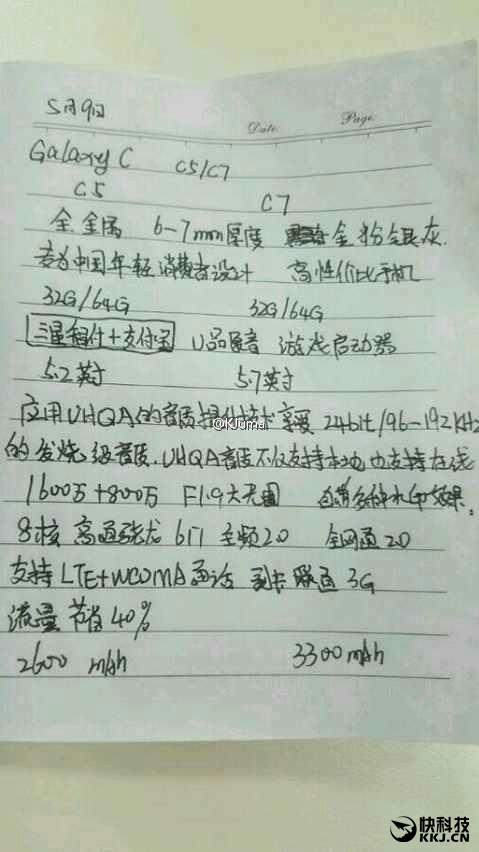 5月9日
Date
Page
Galaxy C C5/C7
C5 C7
全金属 6-7mm厚度 金粉银灰.
专为中国年轻消费者设计 高性价比手机
32G/64G 32G/64G
三星智付+支付宝 U品 音 游戏启动器
5.2英寸 5.7英寸
应用UHQA的音质提升技术享受 24bit/96-192KHz
@KJuma
的发烧级音质.UHQA音质不仅支持本地也支持在线
1600万+800万 F1.9大光圈 多种水印效果.
8核 高通骁龙 617 主频2.0 全网通 2.0
支持LTE+WCDMA通话 副卡联通3G
流量节省40%
2600 mAh 3300mAh
快科技
KKJ.CN